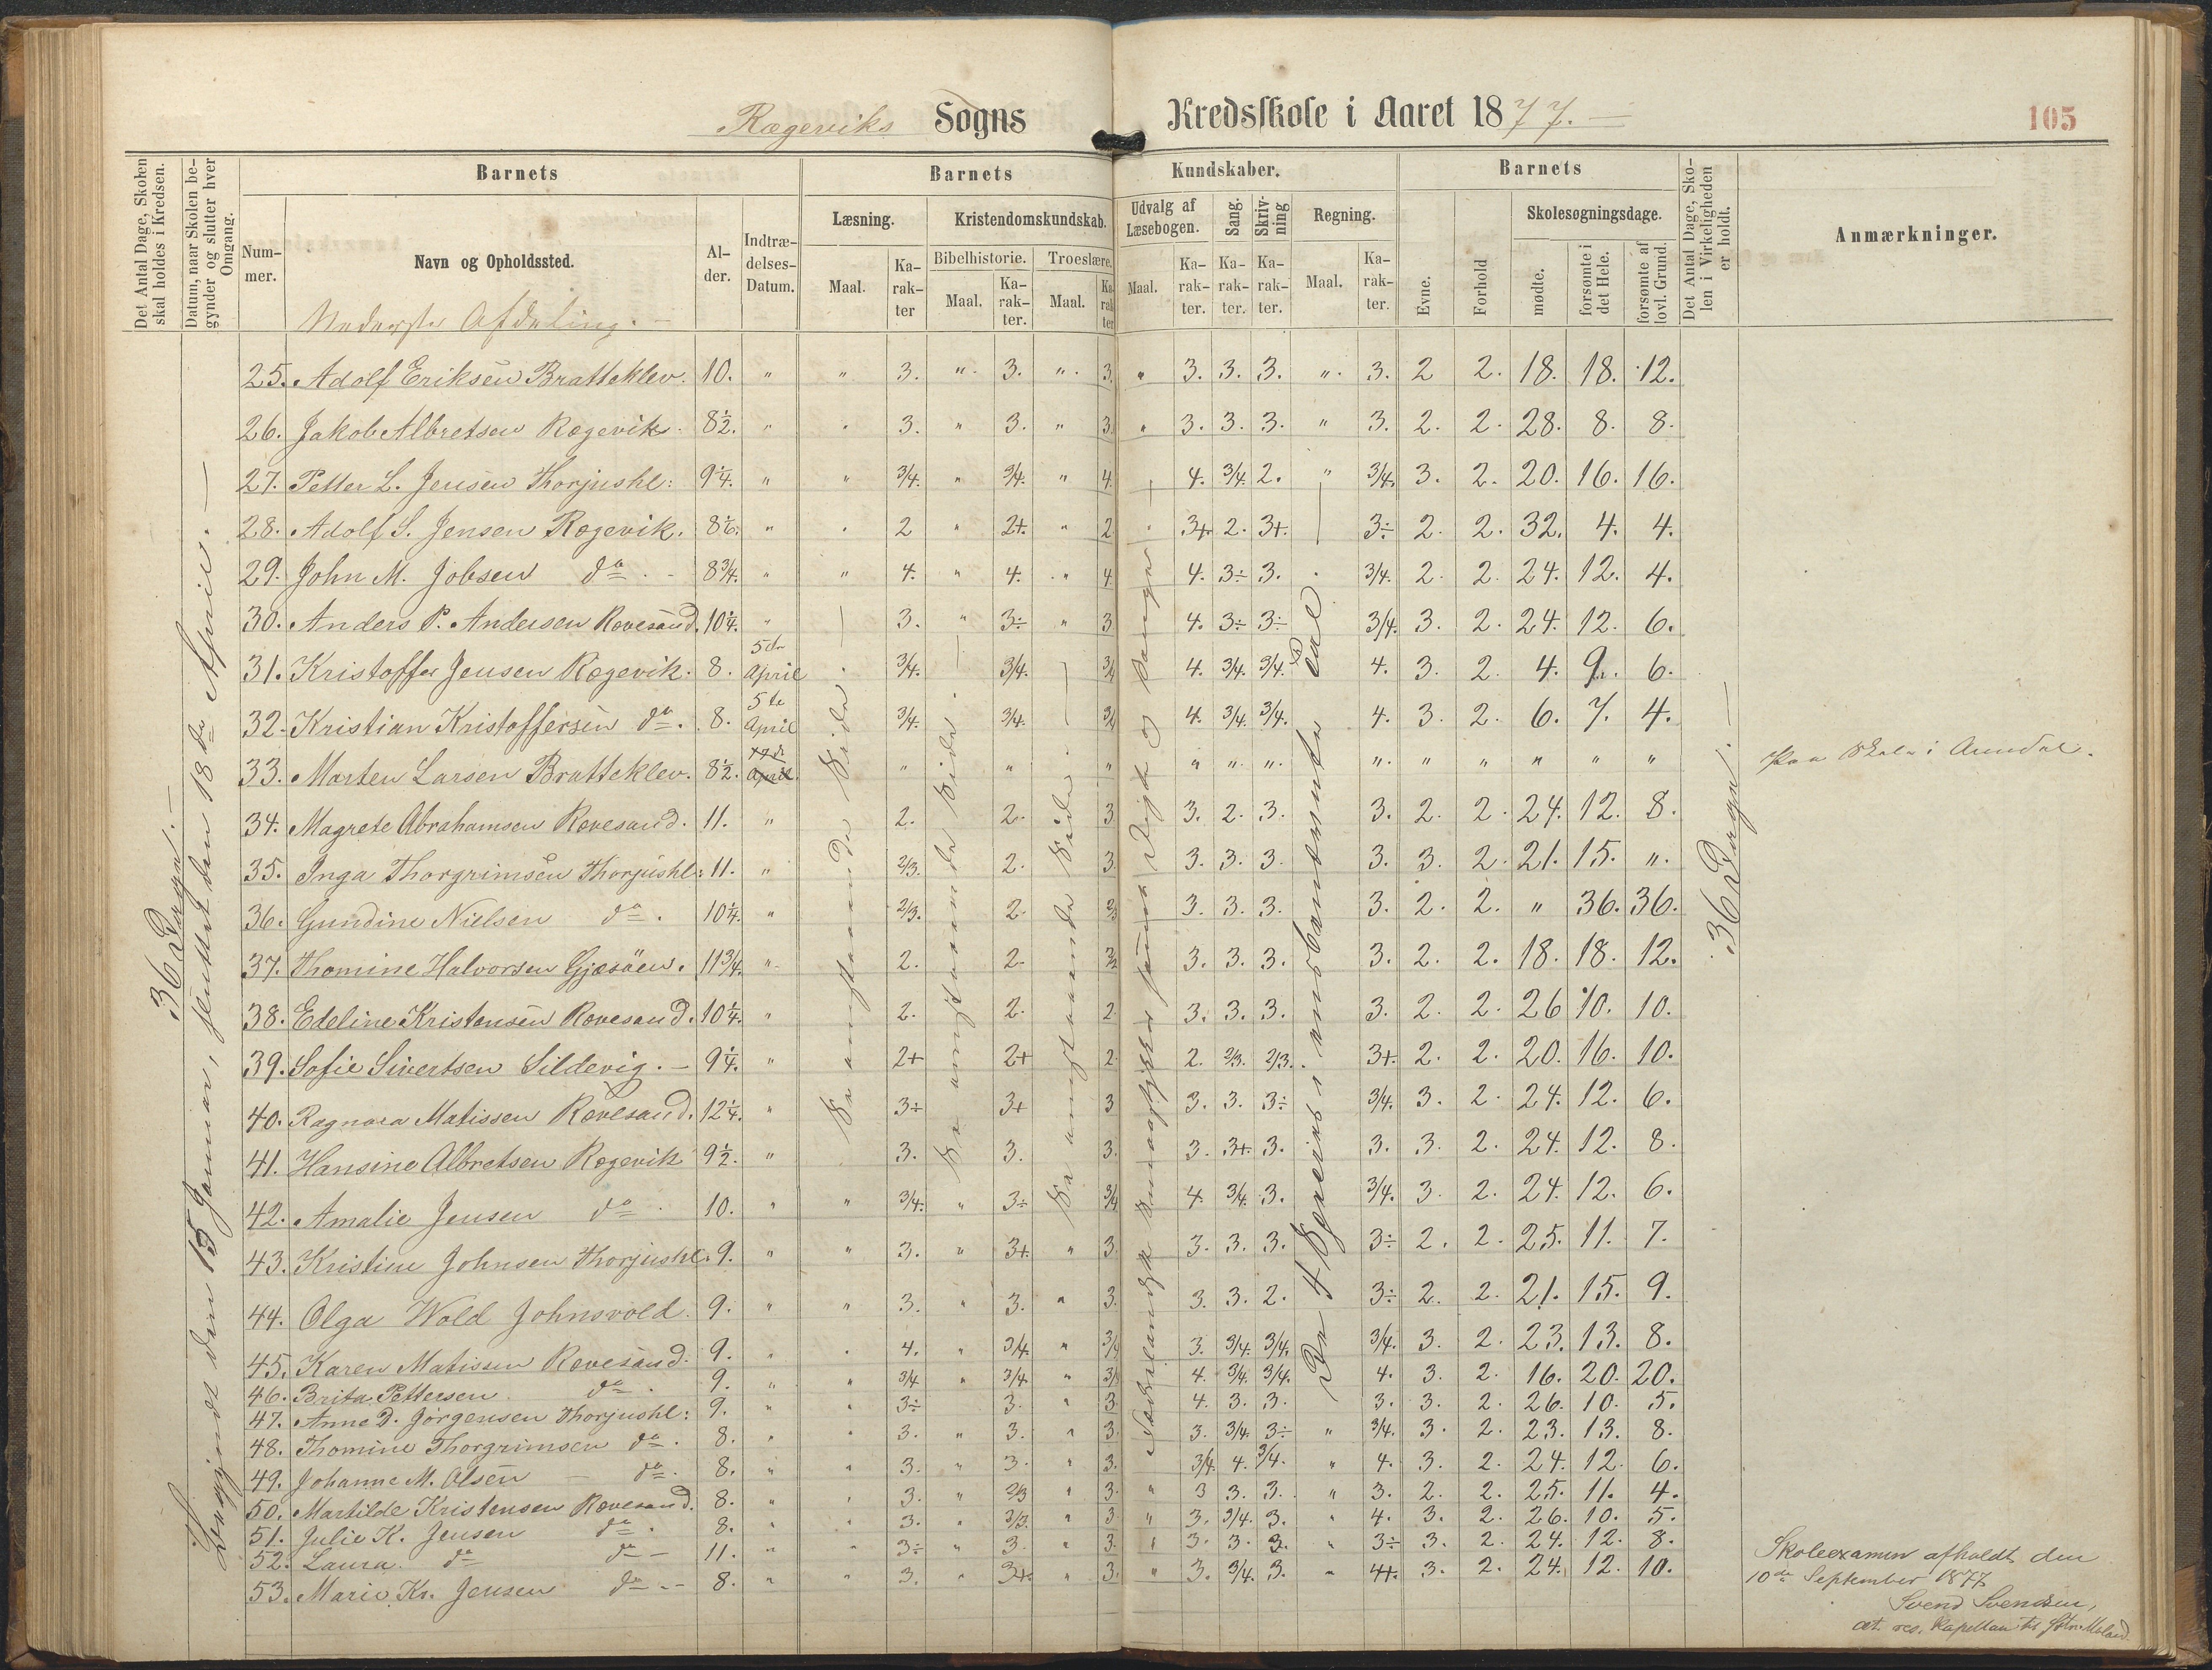 Rægeviks Sogns Kredsskole i Aaret 1877. —
105
Det Antal Dage, Skolen skal holdes i Kredsen.
Datum, naar Skolen begynder og slutter hver Omgang.
Barnets
Nummer.
Navn og Opholdssted.
Alder.
Indtrædelses-Datum.
Barnets Kundskaber.
Læsning.
Maal.
Karakter
Kristendomskundskab.
Bibelhistorie.
Maal.
Karakter.
Troeslære.
Maal.
Karakter
Udvalg af Læsebogen.
Maal.
Karakter.
Sang.
Karakter.
Skrivning
Karakter.
Regning.
Maal.
Karakter.
Barnets
Evne.
Forhold
Skolesøgningsdage.
mødte.
forsømte i det Hele.
forsømte af lovl. Grund.
Det Antal Dage, Skolen i Virkeligheden er holdt.
Anmærkninger.
Nederste Afdeling. —
25. Adolf Eriksen Bratteklev. 10. " " 3. " 3. " 3. " 3. 3. 3. " 3. 2 2. 18. 18. 12.
26. Jakob Albretsen Rægevik. 8½. " " 3. " 3. " 3. " 3. 3. 3. " 3. 2. 2. 28. 8. 8.
27. Petter L. Jensen Thorjushl: 9¼. " " 3/4. " 3/4. " 4. 4. 3/4. 2. " 3/4. 3. 2. 20. 16. 16.
28. Adolf S. Jensen Rægevik. 8⅙. " " 2 " 2+. " 2 3+ 2. 3+. 3÷ 2. 2. 32. 4. 4.
29. John M. Jobsen do. 8¾. " " 4. " 4. " 4. 4. 3÷ 3. 3/4. 2. 2. 24. 12. 4.
30. Anders P. Andersen Rævesand. 10¼. " 3. " 3÷ " 3 4. 3÷ 3÷ 3/4. 3. 2. 24. 12. 6.
31. Kristoffer Jensen Rægevik. 8. 5de April 3/4. 3/4. 3/4 4. 3/4. 3/4. 4. 3. 2. 4. 9. 6.
32. Kristian Kristoffersen do. 8. 5te April 3/4. 3/4. 3/4 4. 3/4. 3/4. 4. 3. 2. 6. 7. 4.
33. Marten Larsen Bratteklev. 8½. April " " " " " " " " " " " " Paa Skole i Arendal.
34. Magrete Abrahamsen Rævesand. 11. " 2. 2. 3 3. 2. 3. 3. 2. 2. 24. 12. 8.
35. Inga Thorgrimsen Thorjushl: 11. " 2/3. 2. 3. 3. 3. 3. 3. 3. 2. 21. 15. "
36. Gundine Nielsen do. 10¼. " 2/3. 2. 2/3 3. 3. 3. 3. 2. 2. " 36. 36.
37. Thomine Halvorsen Gjæsøen. 11¾. " 2. 2. 3/2 3. 3. 3. 3. 2. 2. 18. 18. 12.
38. Edeline Kristensen Rævesand. 10¼. " 2. 2. 2. 3. 3. 3. 3. 2. 2. 26 10. 10.
39. Sofie Sivertsen Sildevig. — 9¼. " 2+ 2+ 2. 2. 2/3. 2/3. 3+. 2. 2. 20. 16. 10.
40. Ragnara Matissen Rævesand. 12¼. " 3÷ 3+ 3 3. 3. 3÷ 3/4. 3. 2. 24. 12. 6.
41. Hansine Albretsen Rægevik 9½. " 3. 3. 3. 3. 3+. 3. 3. 3. 2. 24. 12. 8.
42. Amalie Jensen do. 10. " " 3/4. " 3÷ 3/4 4. 3/4. 3. 3/4. 3. 2. 24. 12. 6.
43. Kristine Johnsen Thorjushl. 9. " " 3. " 3+. " 3. 3. 3. 3. 3÷ 2. 2. 25. 11. 7.
44. Olga Wold Johnsvold. 9. " " 3. " 3. " 3. 3. 3. 2. 3÷ 2. 2. 21. 15. 9.
45. Karen Matissen Rævesand. 9. " " 4. " 3/4. " 3/4 3. 3/4. 3/4. 3/4. 3. 2. 23. 13. 8.
46. Brita Pettersen do. 9. " " 3/4. " 3/4 " 3/4 4. 3/4. 3/4. 4. 3. 2. 16. 20. 20.
47. Anne D. Jørgensen Thorjushl: 9. " " 3÷ 3. " 3. 4. 3. 3. 3. 3. 2. 26. 10. 5.
48. Thomine Thorgrimsen do. 8. " " 3. " 3. " 3. 3. 3/4. 3÷ " 3/4. 3. 2. 23. 13. 8.
49. Johanne M. Olsen — do. 8. " " 3. " 3. " 3. 3/4. 4. 3/4. " 4. 3. 2. 24. 12. 6.
50. Martilde Kristensen Rævesand. 8. " " 3. " 2/3 " 3. " 3 3. 3. " 3. 2. 2. 25. 11. 4.
51. Julie K. Jensen do. 8. " " 3. " 2/3. " 3 " 3. 3/4. 3. " 4. 3. 2. 26. 10. 5.
52. Laura do do — 11. " " 3÷ " 3. " 3. " 3. 3. 3. " 3÷ 3. 2. 24. 12. 8.
53. Marie Kr. Jensen do. — 8. " " 3. " 3+. " 3. " 3. 3/4. 3. " 4+. 3. 2. 24. 12. 10.
36 Dage. —
Begyndt den 15 Januar, sluttet den 18de April. —
Se angstaaende Side
Se angstaaende Side.
Se angstaaende Side.
De 4 Species i ensbenævnte Tal
36 Dage. —
Skoleexamen afholdt den
10de September 1877
Svend Svendsen,
res. Kapellan til